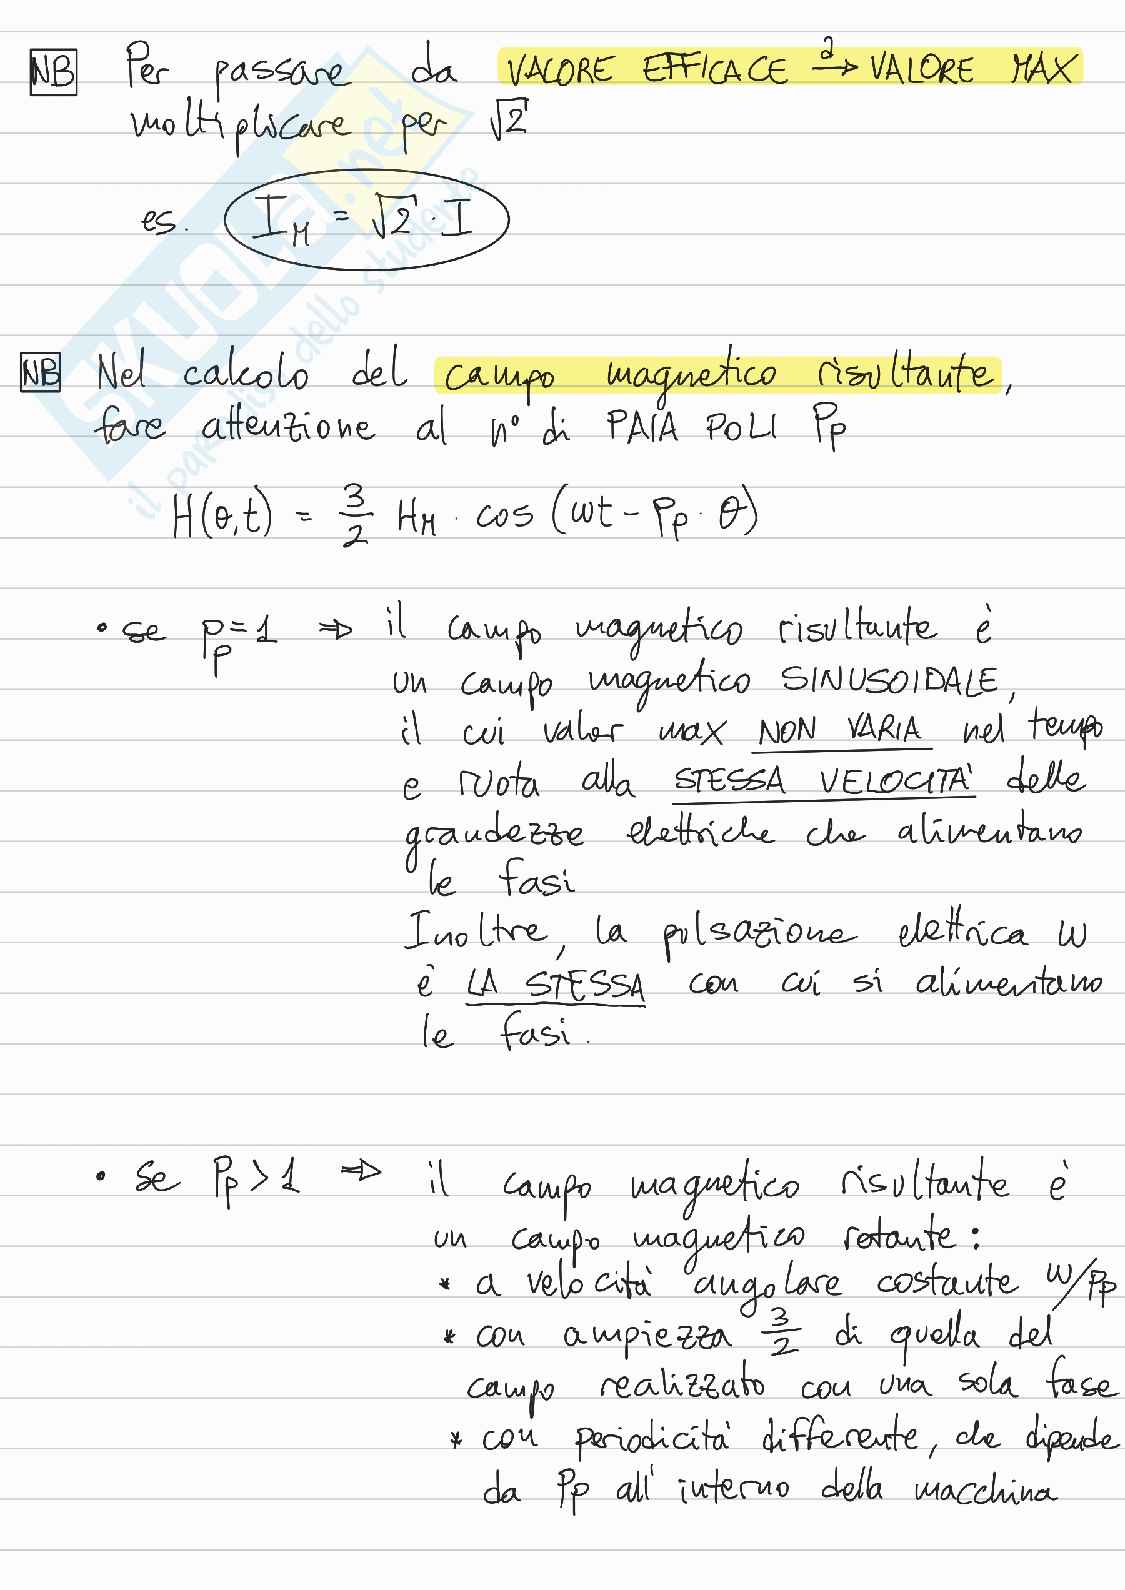 NB Per passare da VALORE EFFICACE → VALORE MAX
moltiplicare per √2
es. I_M = √2 · I
NB Nel calcolo del campo magnetico risultante,
fare attenzione al n° di PAIA POLI Pp
H(θ,t) = 3/2 H_M · cos (ωt - Pp · θ)
• se Pp=1 ⇒ il campo magnetico risultante è
un campo magnetico SINUSOIDALE,
il cui valor max NON VARIA nel tempo
e ruota alla STESSA VELOCITA' delle
grandezze elettriche che alimentano
le fasi
Inoltre, la pulsazione elettrica ω
è LA STESSA con cui si alimentano
le fasi.
• Se Pp>1 ⇒ il campo magnetico risultante è
un campo magnetico rotante:
* a velocità angolare costante ω/Pp
* con ampiezza 3/2 di quella del
campo realizzato con una sola fase
* con periodicità differente, che dipende
da Pp all'interno della macchina
SKUOLA.net
il paradiso dello studente